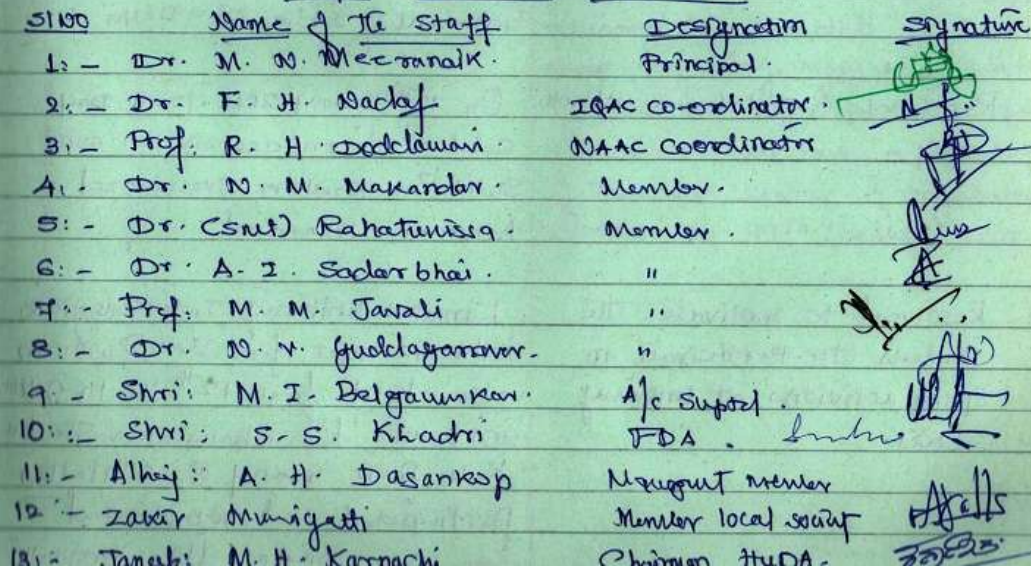 Sl NO Name of The Staff Designation Signature
1:- Dr. M. N. Meeranaik. Principal.
2:- Dr. F. H. Nadaf IQAC co-ordinator.
3:- Prof: R. H. Doddawani. NAAC Coordinator
4:- Dr. N. M. Makandar. Member.
5:- Dr. (Smt) Rahatunissa. Member.
6:- Dr. A. I. Sadarbhai. "
7:- Prof: M. M. Javali "
8:- Dr. N. V. Guddaganavar. "
9:- Shri: M. I. Belgaumkar. A/c Suptd.
10:- Shri: S. S. Khadri FDA.
11:- Alhaj: A. H. Dasankop Member
12:- Zakir Munigatti Member local society
13:- Janab: M. H. Karnachi Chairman HUDA.